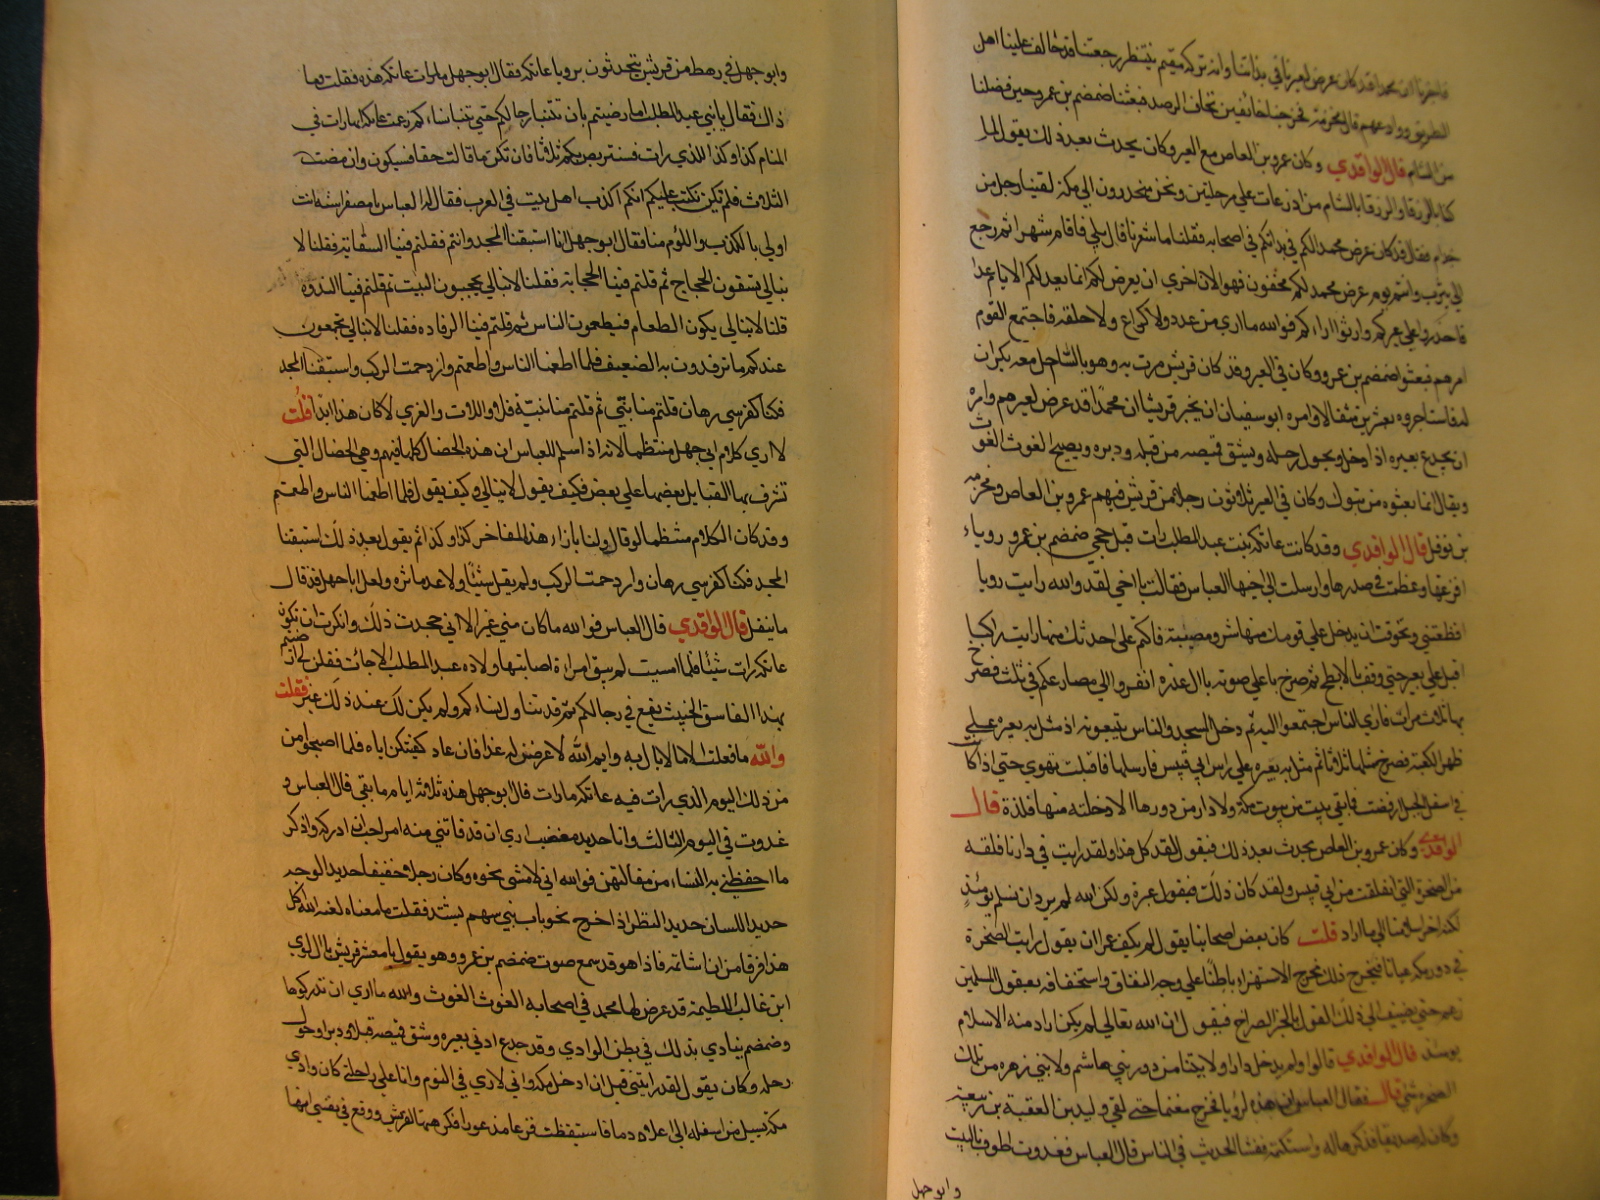 فاخبرنا ان محمدا قد كان عرض لعيرنا في بداتنا وانه تركه مقيم ينتظر رجعتنا قد حالف علينا اهل
الطريق ووادعهم قال مخرمة فخرجنا خائفين نخاف الرصد فبعثنا ضمضم بن عمرو حين فصلنا
من الشام قال الواقدي وكان عمرو بن العاص مع العير وكان يحدث بعد ذلك يقول لما
كنا بالزرقا والزرقا بالشام من اذرعات علي مرحلتين ونحن منحدرون الي مكة لقينا رجل من
جذام فقال قد كان عرض محمد لكم في بداتكم في اصحابه فقلنا ما شعرنا قال بلي فاقام شهرا ثم رجع
الي يثرب وانتم يوم عرض محمد لكم مخفون فهو الان احري ان يعرض لكم انما يعد لكم الايام عدا
فاحذروا علي عيركم وارتؤا اراءكم فوالله ما اري من عدد ولا كراع ولا حلقه فاجتمع القوم
امرهم فبعثوا ضمضم بن عمرو وكان في العير وقد كان قريش مرت به وهو بالساحل معه بكران
فاستاجروه بعشرين مثقالا وامره ابو سفيان ان يخبر قريشا ان محمدا قد عرض لعيرهم وامره
ان يجدع بعيره اذا دخل ويحول رحله ويشق قميصه من قبله ودبره ويصيح الغوث الغوث
ويقال انما بعثوه من تبوك وكان في العير ثلاثون رجلا من قريش فيهم عمرو بن العاص ومخرمه
بن نوفل قال الواقدي وقد كانت عاتكه بنت عبد المطلب رات قبل مجي ضمضم بن عمرو روياء
افزعتها وعظمت في صدرها وارسلت الي اخيها العباس فقالت يا اخي لقد والله رايت رويا
افظعتني وتخوفت ان يدخل علي قومك منها شر ومصيبة فاكتم علي احدثك منها رايت راكبا
اقبل علي بعير حتي وقف بالابطح ثم صرخ باعلي صوته يا ال غدر انفروا الي مصارعكم في ثلث فصرخ
بها ثلاث مرات فاري الناس اجتمعوا اليه ثم دخل المسجد والناس يتبعونه اذ مثل به بعيره علي
ظهر الكعبة فصرخ بمثلها ثلاثا ثم مثل به بعيره علي راس ابي قبيس فارسلها فاقبلت تهوي حتي اذا كانت
في اسفل الجبل ارفضت فما بقي بيت من بيوت مكة ولا دار من دورها الا دخلته منها فلذة قال
الواقدي وكان عمرو بن العاص يحدث بعد ذلك فيقول لقد كل هذا ولقد رايت في دارنا فلقه
من الصخرة التي انفلقت من ابي قبيس ولقد كان ذلك عبرة ولكن الله لم يرد ان نسلم يومئذ
لكنه اخر اسلامنا الي ما اراد قلت كان بعض اصحابنا يقول لم يكف عمرا ان يقول رايت الصخرة
في دور مكه عيانا فيخرج ذلك مخرج الاستهزاء باطنا علي وجه النفاق واستخفافه بعقول المسلمين
زعم حتي يضيف الي ذلك القول بالجبر الصراح فيقول ان الله تعالي لم يكن اراد منه الاسلام
يومئذ قال الواقدي قالوا ولم يدخل دارا ولا بيتا من دور بني هاشم ولا بني زهره من تلك
الصخرة شي قال فقال العباس ان هذه لرؤيا فخرج مغتما حتي لقي وليد بن العقبة بن ربيعه
وكان له صديقا فذكرها له واستكتمه ففشا الحديث في الناس قال العباس فغدوت اطوف بالبيت
وابو جهل
وابو جهل في رهط من قريش يتحدثون برويا عاتكه فقال ابو جهل ما رات عاتكه هذه فقلت وما
ذاك فقال يا بني عبد المطلب اما رضيتم بان تتنبا رجالكم حتي تنبا نساءكم زعمت عاتكه انها رات في
المنام كذا وكذا للذي رات فسنتربص بكم ثلاثا فان تكن ما قالت حقا فسيكون وان مضت
الثلاث فلم تكن نكتب عليكم انكم اكذب اهل بيت في العرب فقال له العباس يا مصفر استه انت
اولي بالكذب واللؤم منا فقال ابو جهل انا استبقنا المجد وانتم فقلتم فينا السقاية فقلنا لا
نبالي تسقون الحجاج ثم قلتم فينا الحجابة فقلنا لا نبالي تحجبون البيت ثم قلتم فينا الندوه
قلنا لا نبالي يكون الطعام فيطعمون الناس ثم قلتم فينا الرفاده فقلنا لا نبالي تجمعون
عندكم ما ترفدون به الضعيف فلما اطعمنا الناس واطعمتم وازدحمت الركب واستبقنا المجد
فكنا كفرسي رهان قلتم منا نبي ثم قلتم منا نبية فلا واللات والعزي لا كان هذا ابدا قلت
لا اري كلام ابي جهل منتظما لانه اذا سلم للعباس ان هذه الخصال كلها فيهم وهي الخصال التي
تشرف بها القبايل بعضها علي بعض فكيف يقول لا نبالي وكيف يقول فلما اطعمنا الناس واطعمتم
وقد كان الكلام منتظما لو قال ولنا بازاء هذه المفاخر كذا وكذا ثم يقول بعد ذلك استبقنا
المجد فكنا كفرسي رهان وازدحمت الركب ولم يقل شيئا ولا عد ماثره ولعل ابا جهل قد قال
ما ينقل قال الواقدي قال العباس فوالله ما كان مني غير الا اني جحدت ذلك وانكرت ان تكون
عاتكه رات شيئا فلما امسيت لم يبق امراة اصابتها ولاده عبد المطلب الا جات فقلن لي ارضيتم
بهذا الفاسق الخبيث يقع في رجالكم ثم قد تناول نساءكم ولم يكن لك عند ذلك غير فقلت
والله ما فعلت الا ما لا بال به وايم الله لاعرضن له غدا فان عاد كفيتكن اياه فلما اصبحوا من
من ذلك اليوم الذي رات فيه عاتكه ما رات قال ابو جهل هذه ثلاثة ايام ما بقي قال العباس و
غدوت في اليوم الثالث وانا حديد مغضب اري ان قد فاتني منه امر احب ان ادركه واذكر
ما احفظني به النساء من مقالتهن فوالله اني لامشي نحوه وكان رجلا خفيفا حديد الوجه
حديد اللسان حديد النظر اذ اخرج نحو باب بني سهم يشتد فقلت ما معناه لعنه الله اكل
هذا فرقا من ان اشاتمه فاذا هو قد سمع صوت ضمضم بن عمرو وهو يقول يا معشر قريش يا ال لوي
ابن غالب اللطيمة قد عرض لها محمد في اصحابه الغوث الغوث والله ما اري ان تدركوها
وضمضم ينادي بذلك في بطن الوادي وقد جدع اذني بعيره وشق قميصه قبلا ودبرا وحول
رحله وكان يقول لقد رايتني قبل ان ادخل مكه واني لاري في النوم وانا علي راحلتي كان وادي
مكة يسيل من اسفله الي اعلاه دما فاستيقظت فزعا مذعورا فكرهتها لقريش ووقع في نفسي انها